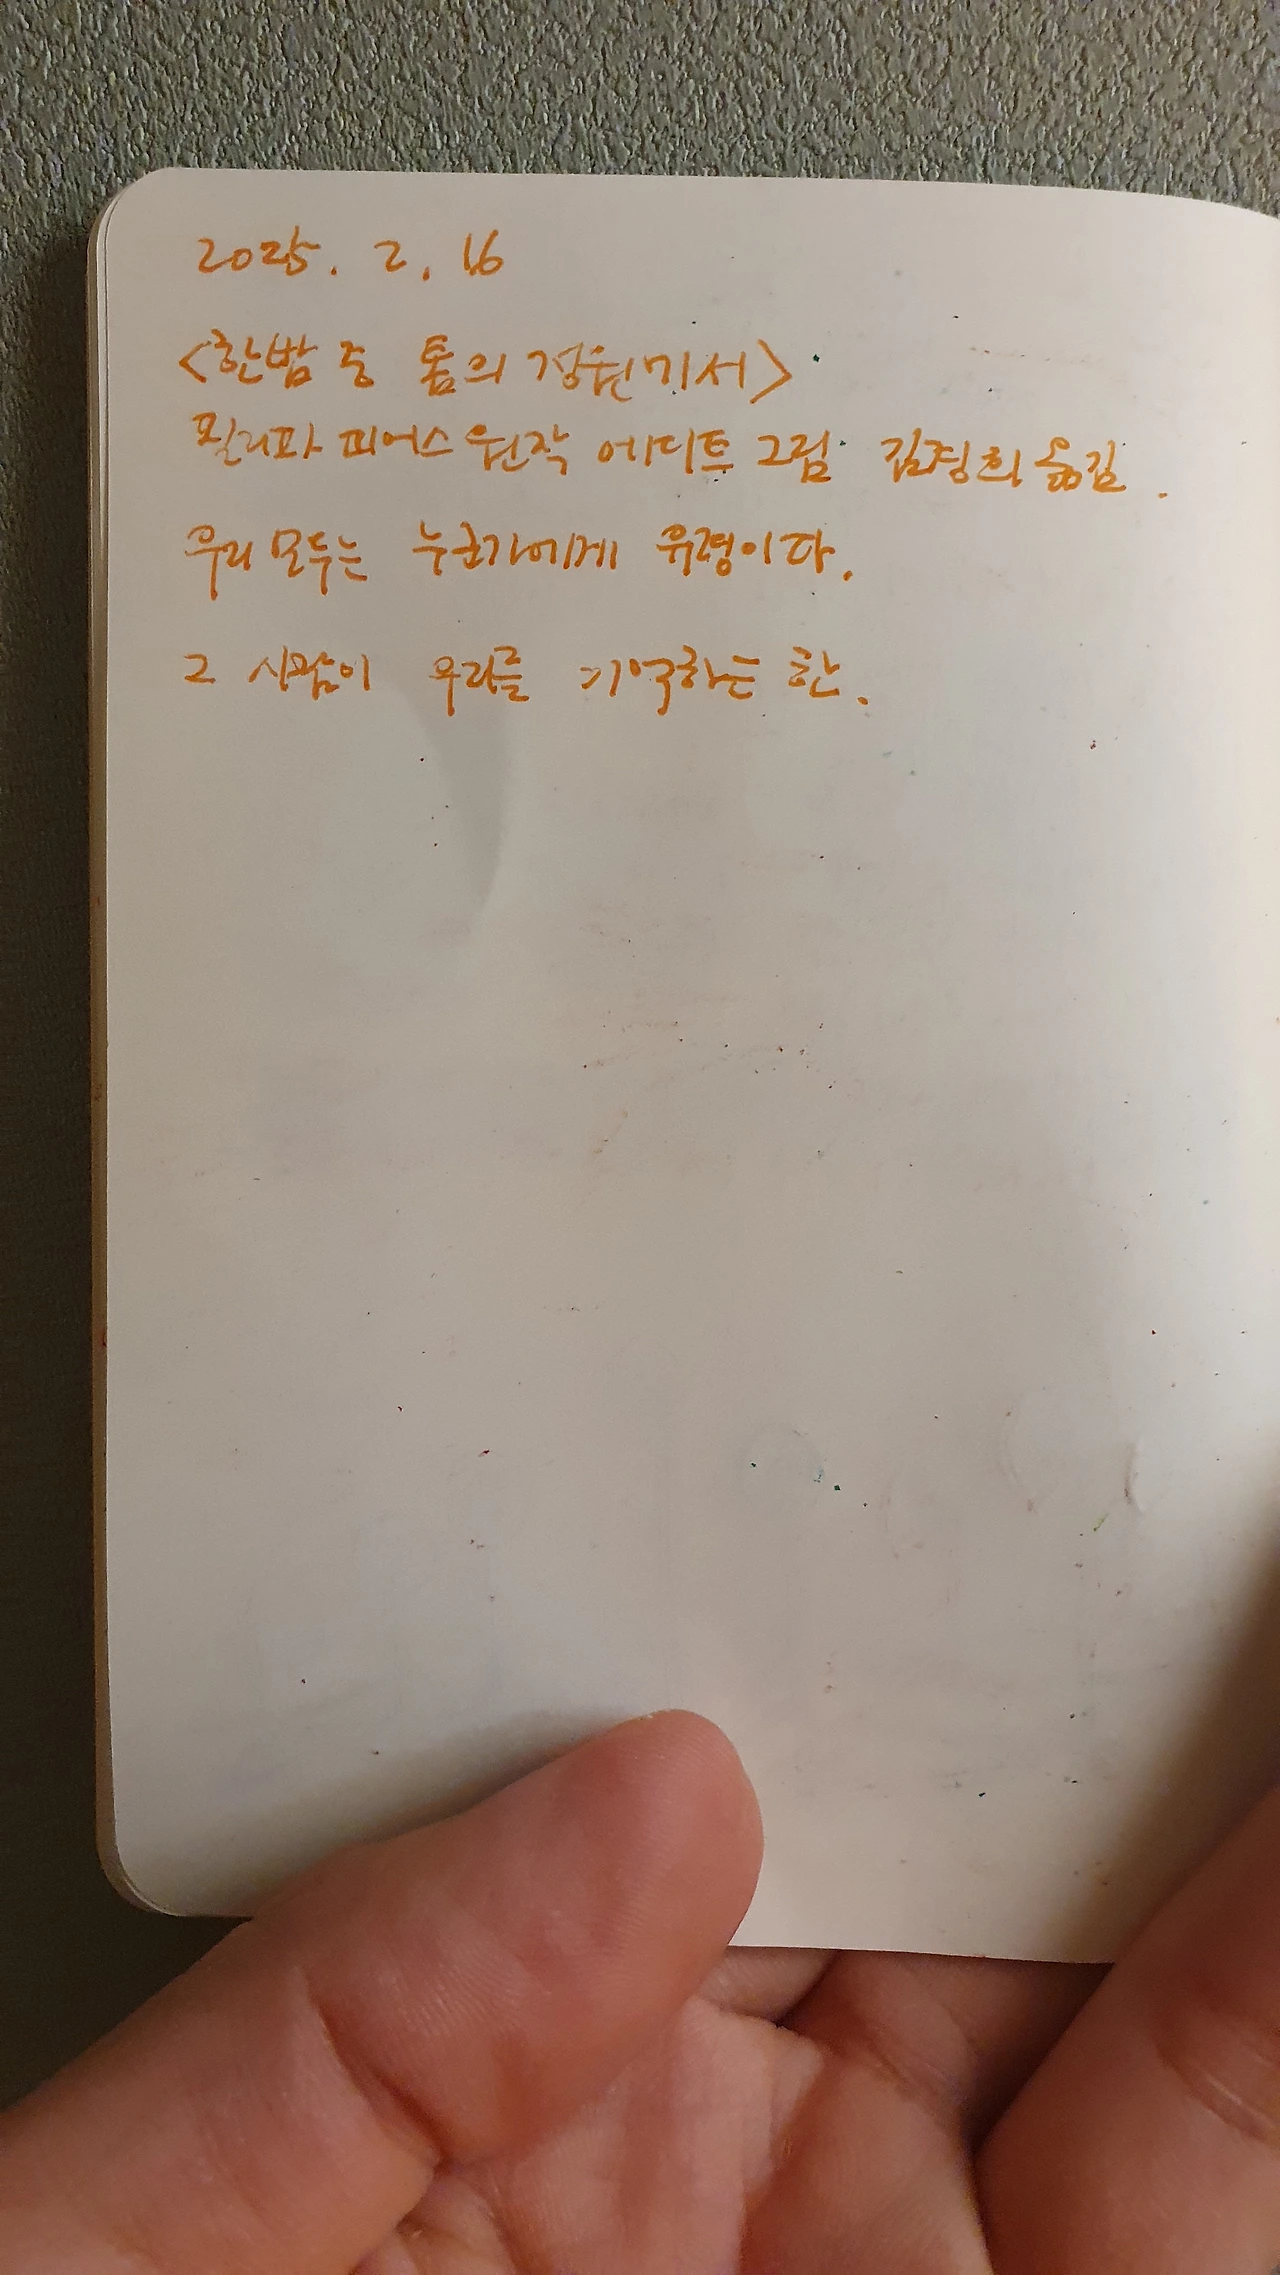 2025. 2. 16
<한밤 중 톰의 정원에서>
필리파 피어스 원작 에디트 그림 김경희 옮김.
우리 모두는 누군가에게 유령이다.
그 사람이 우리를 기억하는 한.